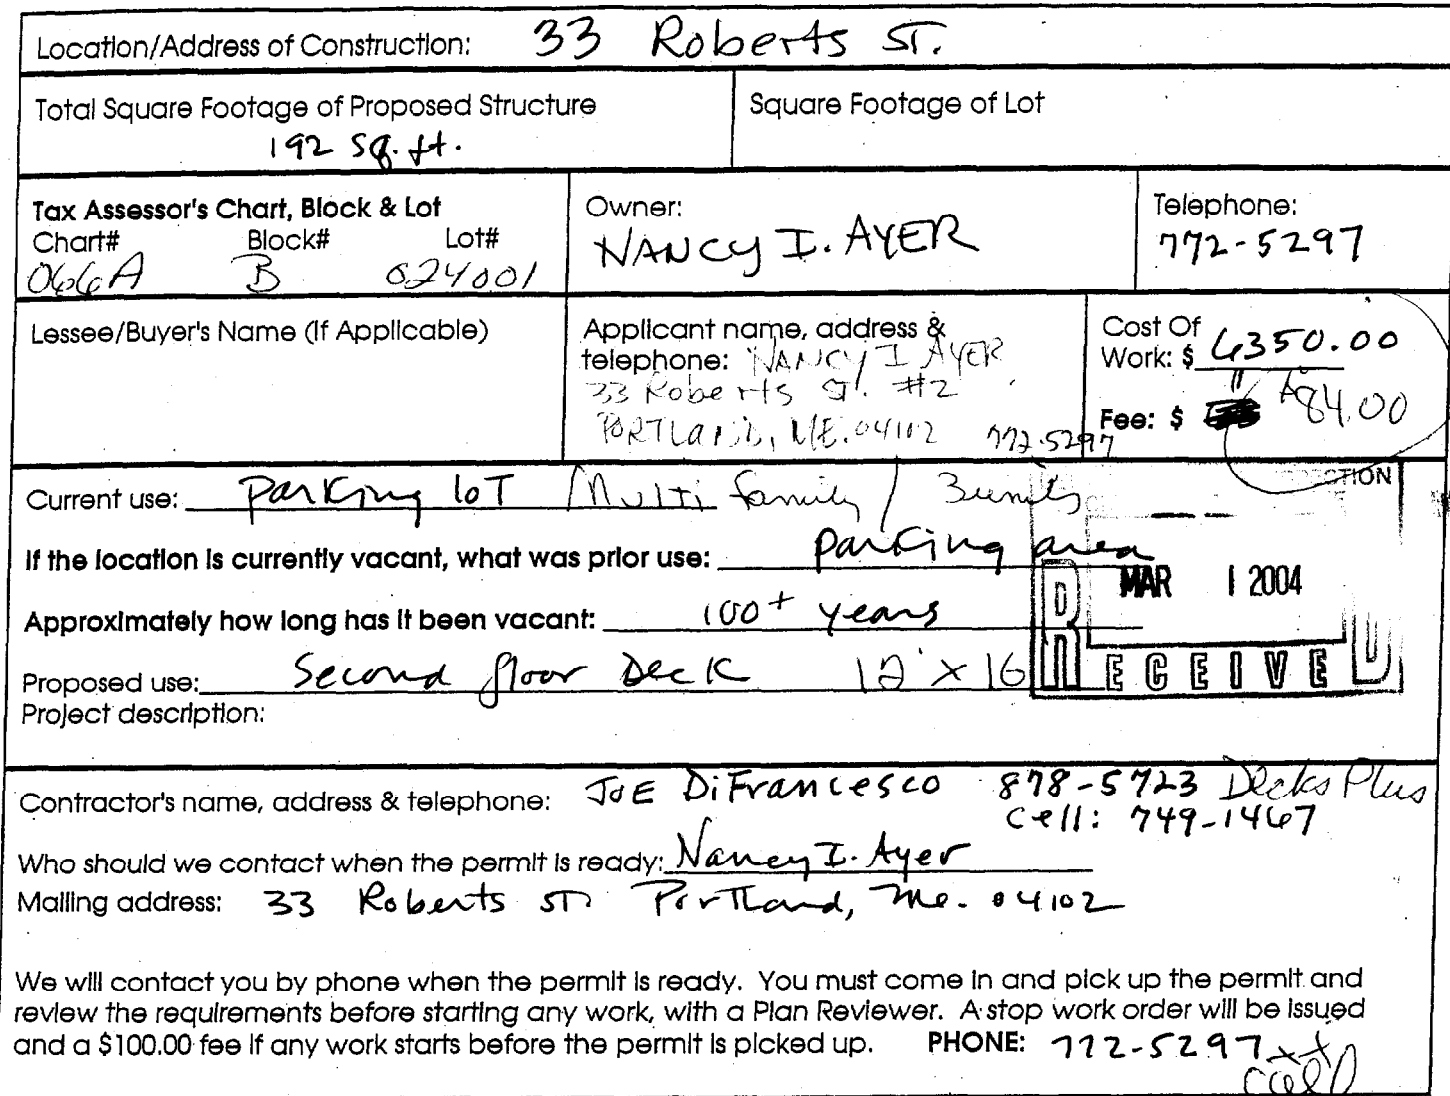 Location/Address of Construction: 33 Roberts ST.
Total Square Footage of Proposed Structure
192 Sq. ft.
Square Footage of Lot
Tax Assessor's Chart, Block & Lot
Chart# Block# Lot#
066A B 024001
Owner:
NANCY I. AYER
Telephone:
772-5297
Lessee/Buyer's Name (If Applicable)
Applicant name, address &
telephone: NANCY I AYER
33 Roberts ST. #2
PORTLAND, ME. 04102 772-5297
Cost Of
Work: $ 6350.00
Fee: $ 84.00
Current use: Parking loT Multi family / 3 units
If the location is currently vacant, what was prior use: parking area
Approximately how long has it been vacant: 100+ years
Proposed use: Second floor Deck 12' x 16
Project description:
CTION
MAR 1 2004
RECEIVED
Contractor's name, address & telephone: JOE DiFrancesco 878-5723 Decks Plus
cell: 749-1467
Who should we contact when the permit is ready: Nancy I. Ayer
Mailing address: 33 Roberts ST. Portland, Me. 04102
We will contact you by phone when the permit is ready. You must come in and pick up the permit and
review the requirements before starting any work, with a Plan Reviewer. A stop work order will be issued
and a $100.00 fee if any work starts before the permit is picked up. PHONE: 772-5297
call